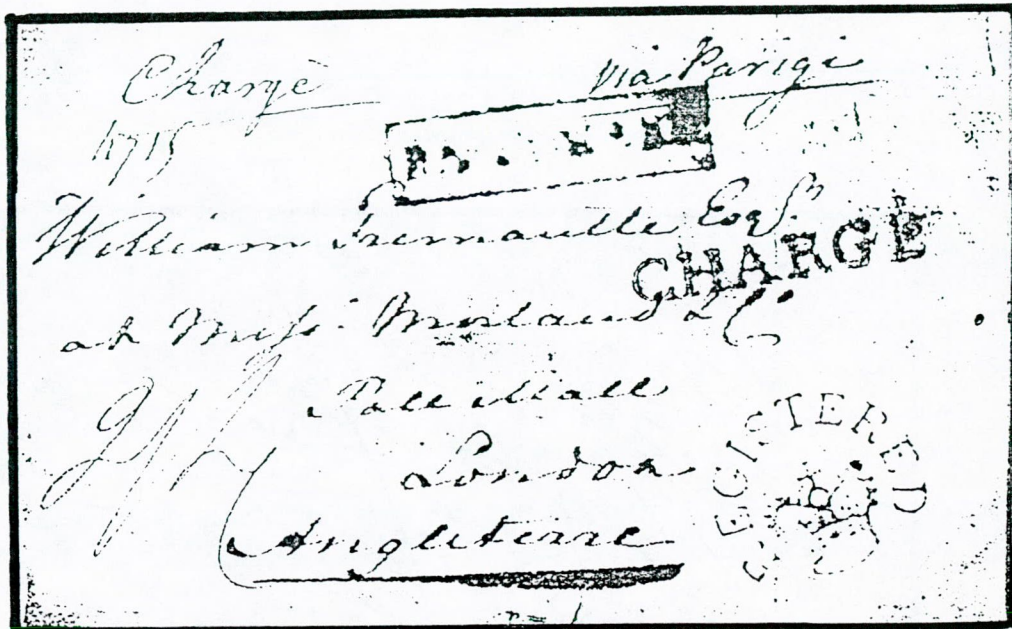 Chargé
via Parigi
William Fremaulle Esqr.
CHARGÉ
at Messrs. Morland & Co.
Pall Mall
London
REGISTERED
Angleterre